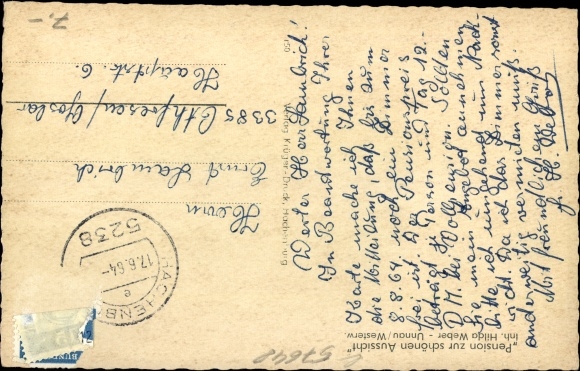 Werter Herr Lambrich!
In Beantwortung Ihrer
Karte mache ich Ihnen
die Mitteilung daß bis zum
8.8.64 noch ein Zimmer
frei ist. Der Pensionspreis
beträgt je Person und Tag 12.-
D.M. bei Vollpension. Sollten
Sie mein Angebot annehmen
bitte ich umgehend um Nach-
richt. Da ich das Zimmer sonst
anderweitig vermieten muß.
Mit freundlichem Gruß:
Fr. H. Weber
"Pension zur schönen Aussicht"
Inh. Hilda Weber - Unnau/Westerw.
Verlag Krüger-Druck, Hachenburg
HACHENBURG
5238
17.6.64
e
Herrn
Ernst Lambrich
3385 Othfresen/Goslar
Hauptstr. 6.
7.-
57642